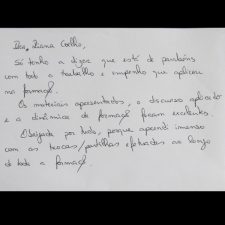 Dra. Diana Coelho,
Só tenho a dizer que está de parabéns
com todo o trabalho e empenho que aplicou
na formação.
Os materiais apresentados, o discurso aplicado
e a dinâmica de formação foram excelentes.
Obrigada por tudo, porque aprendi imenso
com as trocas/partilhas efetuadas ao longo
de toda a formação.